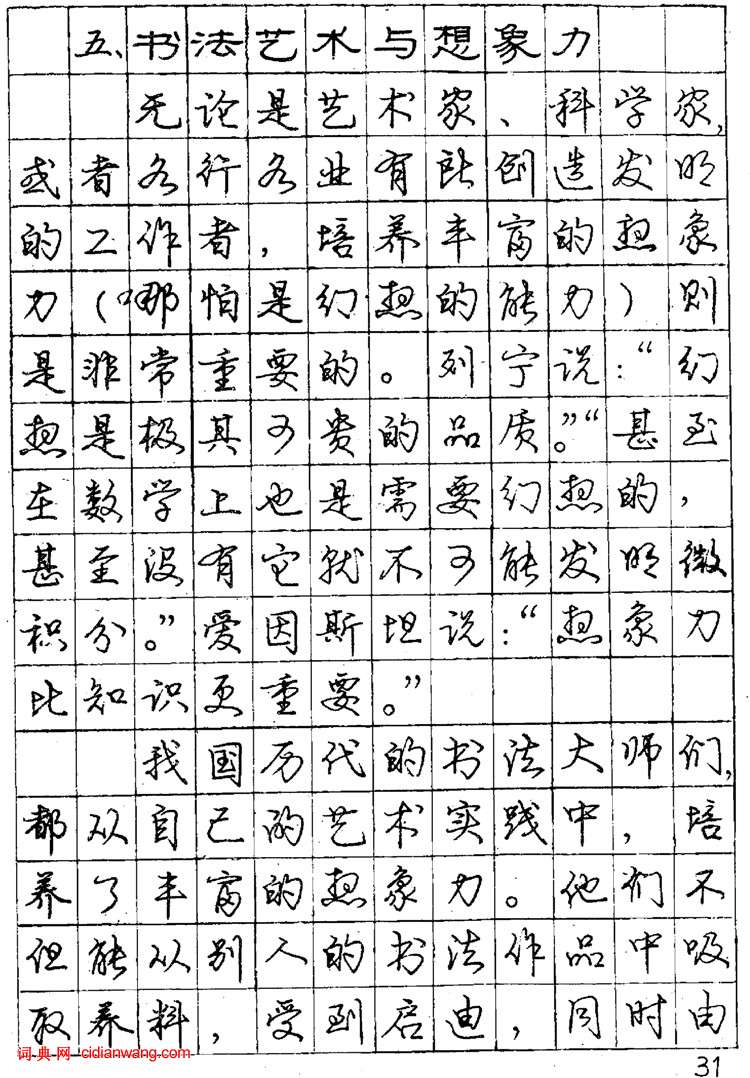 五、书法艺术与想象力
无论是艺术家、科学家,
或者各行各业有所创造发明
的工作者，培养丰富的想象
力（哪怕是幻想的能力）则
是非常重要的。列宁说：“幻
想是极其可贵的品质。”“甚至
在数学上也是需要幻想的，
甚至没有它就不可能发明微
积分。”爱因斯坦说：“想象力
比知识更重要。”
我国历代的书法大师们,
都从自己的艺术实践中，培
养了丰富的想象力。他们不
但能从别人的书法作品中吸
取养料，受到启迪，同时由
词典网-cidianwang.com
31